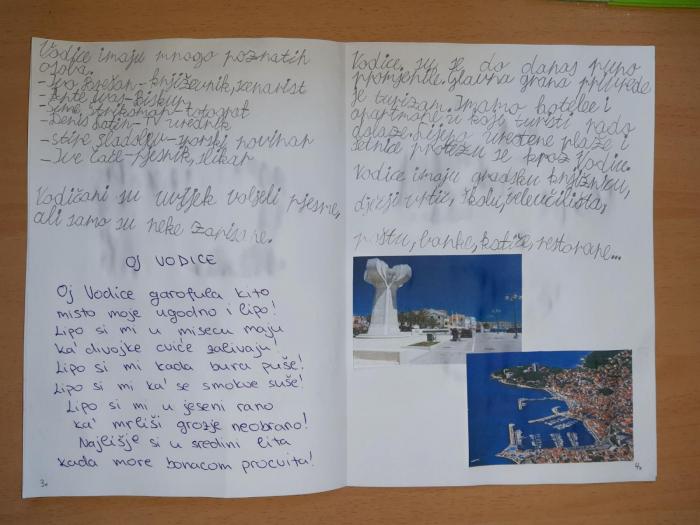 Vodice imaju mnogo poznatih
osoba.
- Ivo Brešan - književnik, scenarist
- Ante Ivas - Biskup
- Šime Strikoman - fotograf
- Denis Latin - TV urednik
- stipe Sladoljev - sporski novinar
- Ive Čače - pjesnik, slikar
Vodičani su uvijek voljeli pjesme,
ali samo su neke zapisane.
OJ VODICE
Oj Vodice garofula kito
misto moje ugodno i lipo!
Lipo si mi u misecu maju
ka' divojke cviće zalivaju!
Lipo si mi kada bura puše!
Lipo si mi ka' se smokve suše!
Lipo si mi u jeseni rano
ka' mriši grozje neobrano!
Najlišje si u sredini lita
kada more bonacom procvita!
3.
Vodice su se do danas puno
promjenile. Glavna grana privrede
je turizam. Imamo hotele i
apartmane u koje turisti rado
dolaze. Lijepo uređene plaže i
šetnice protežu se kroz Vodice.
Vodice imaju gradsku knjižnicu,
dječji vrtić, školu, veleučilišta,
poštu, banke, kafiće, restorane...
4.